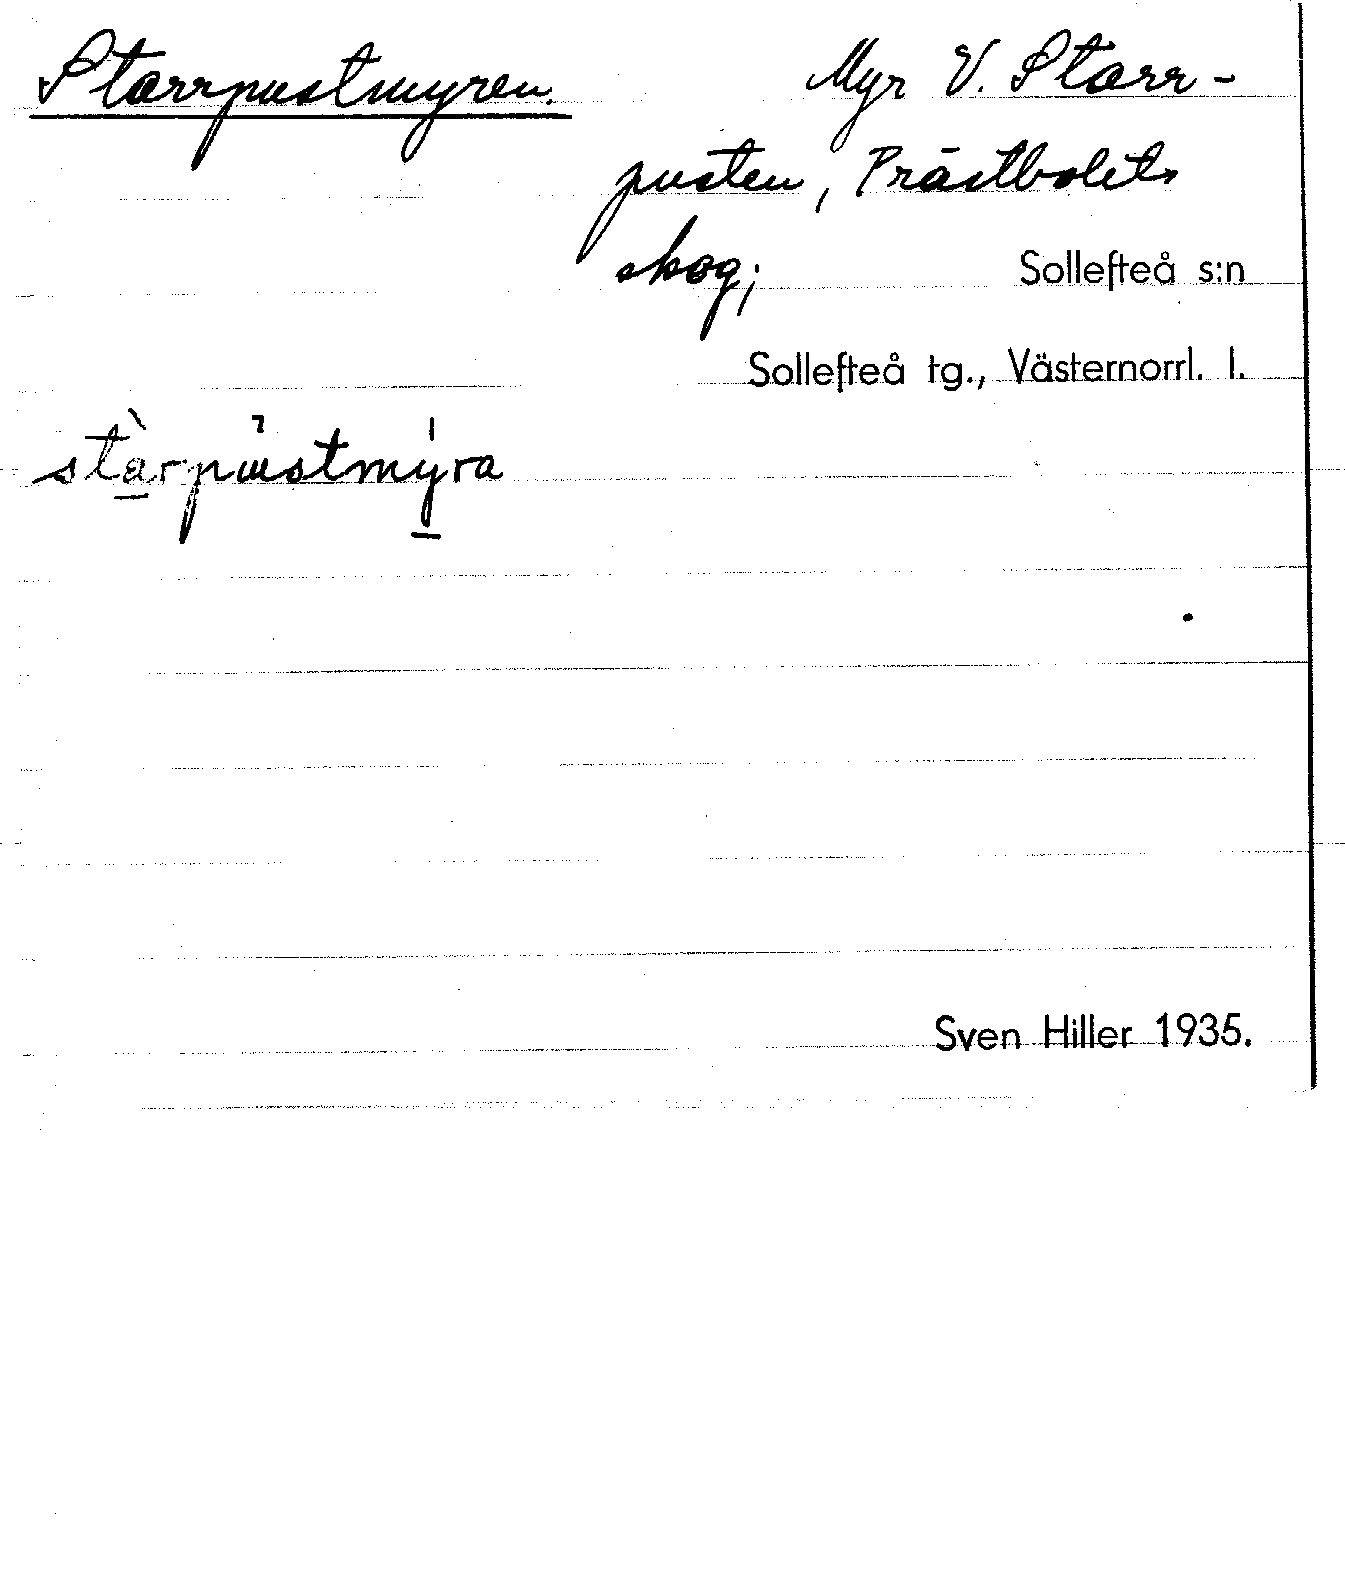 Starrpustmyren. Myr V. Starr-
pusten, Prästbolets
skog; Sollefteå s:n
Sollefteå tg., Västernorrl. l.
stàrpustmýra
Sven Hiller 1935.